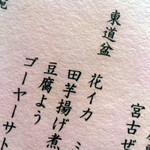 宮古ぜ
東道盆
花イカ
田芋揚げ煮
豆腐よう
ゴーヤーサト